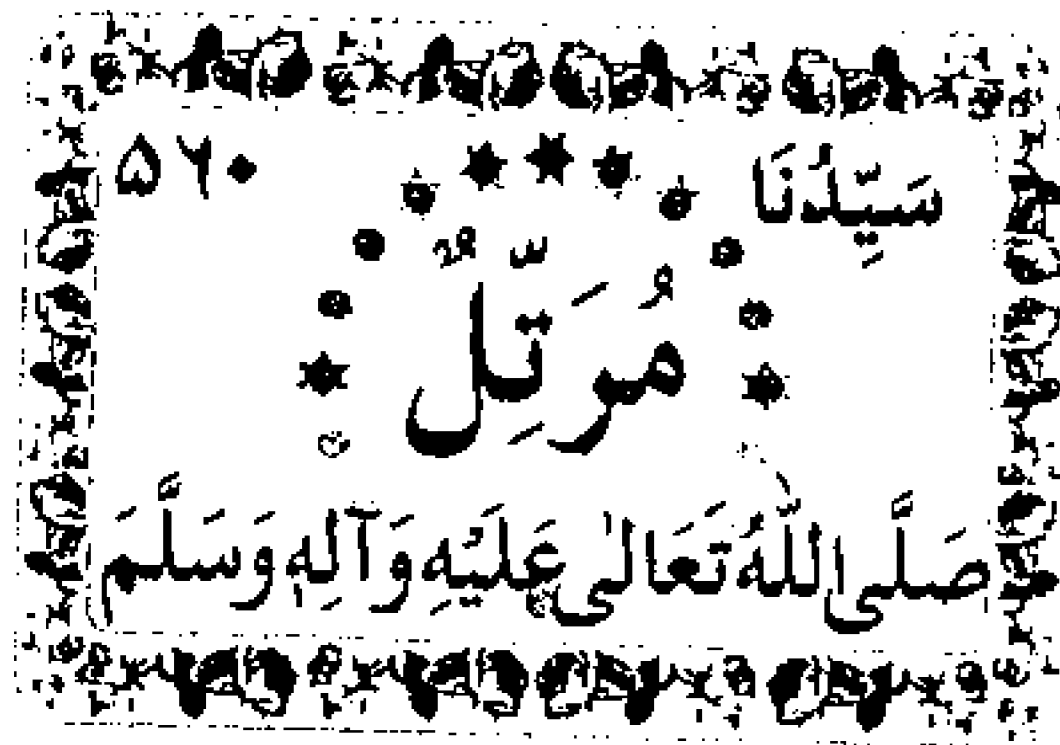 سَيِّدُنَا ۵۶۰
مُرَتِّلٌ
صَلَّى اللّٰهُ تَعَالٰى عَلَيْهِ وَآلِهٖ وَسَلَّمَ